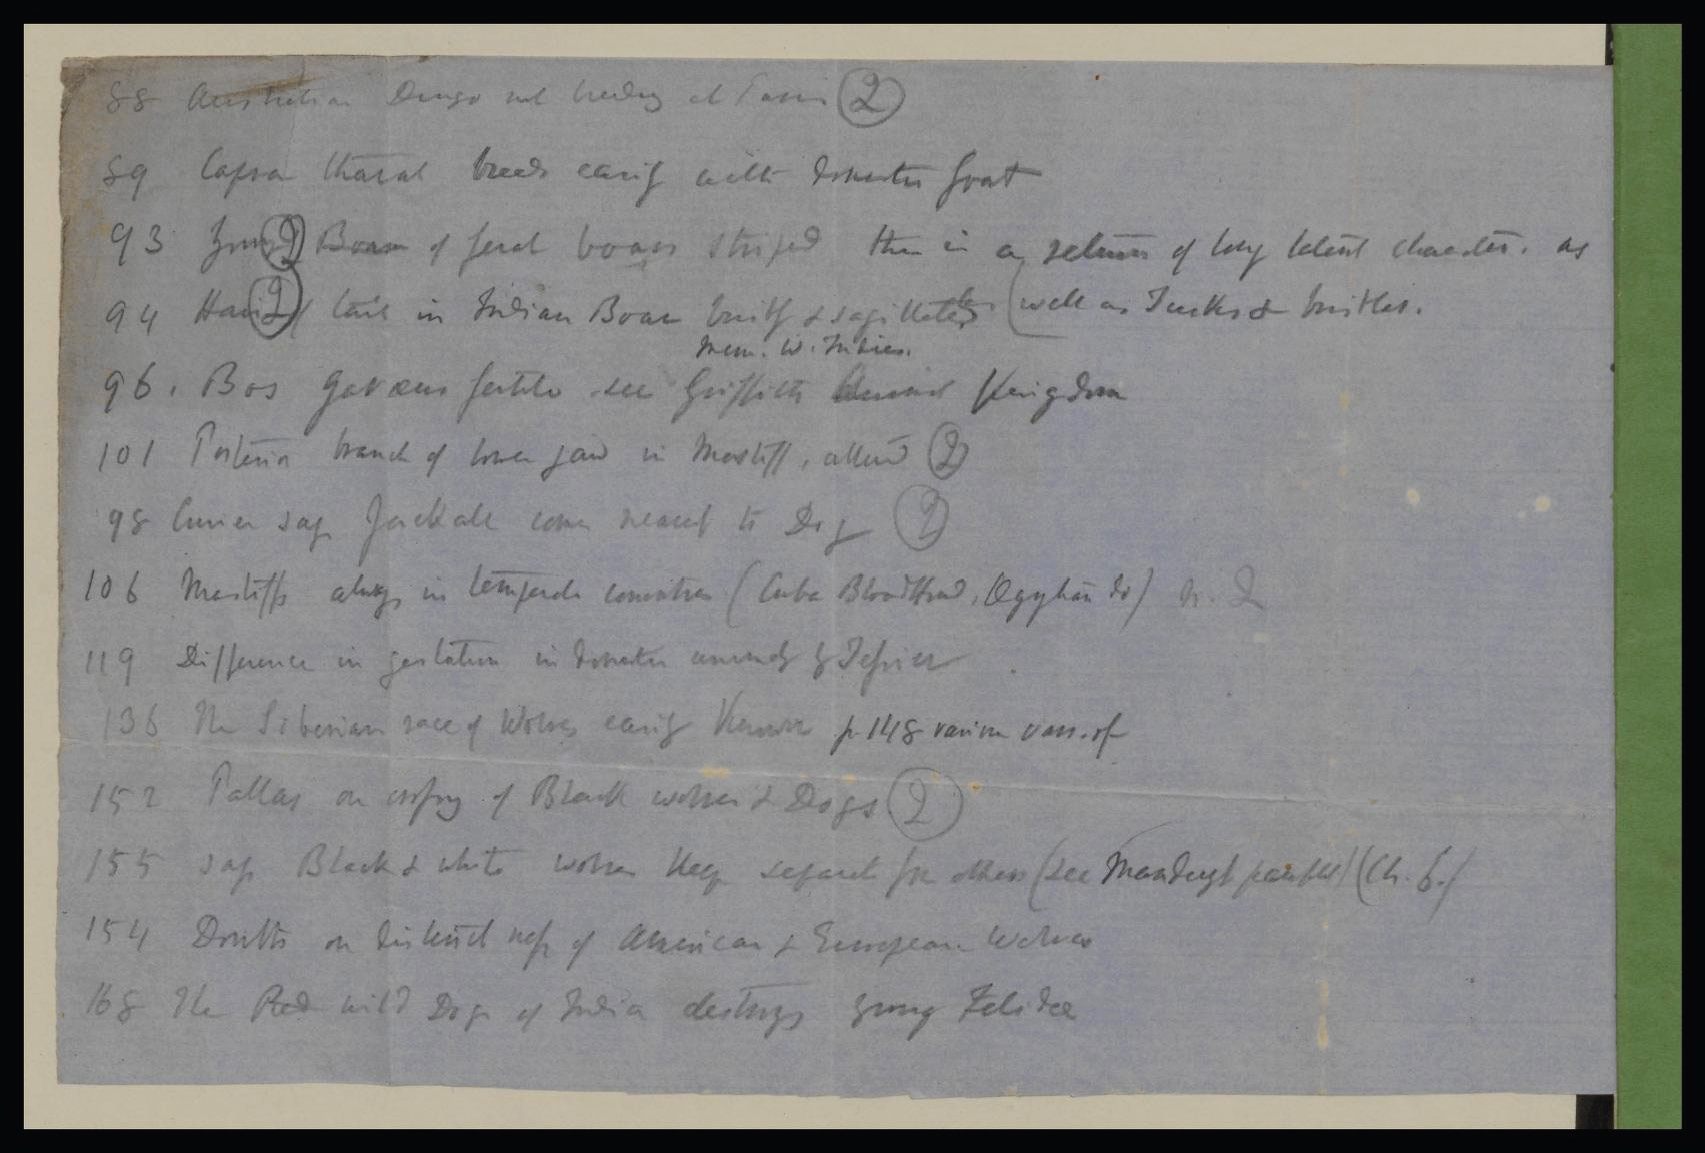 88 Australian Dingo not breeding at Paris (2)
89 Capra tharal breeds easily with domestic goat
93 Young (2) Boars of feral boars striped this is a return of long latent character. as
94 Hairs (2) tail in Indian Boar bristly & sagittate (well as Tusks & bristles.
Mem. W. Indies.
96. Bos Gavaeus fertile see Griffith Animal Kingdom
101 Posterior branch of lower jaw in Mastiff, altered (2)
98 Cuvier says Jackall comes nearest to Dog (2)
106 Mastiffs always in temperate countries (Cuba Bloodhound, do)
119 Difference in gestation in domestic animals by Tessier
136 The Siberian race of Wolves easily known p. 148 various vars. of
152 Pallas on crossing of Black wolves & Dogs (2)
155 says Black & white wolves keep separate from others (see (Ch. 6.)
154 Doubts on distinctness of American & European Wolves
168 The Red wild Dog of India destroys young Felidae